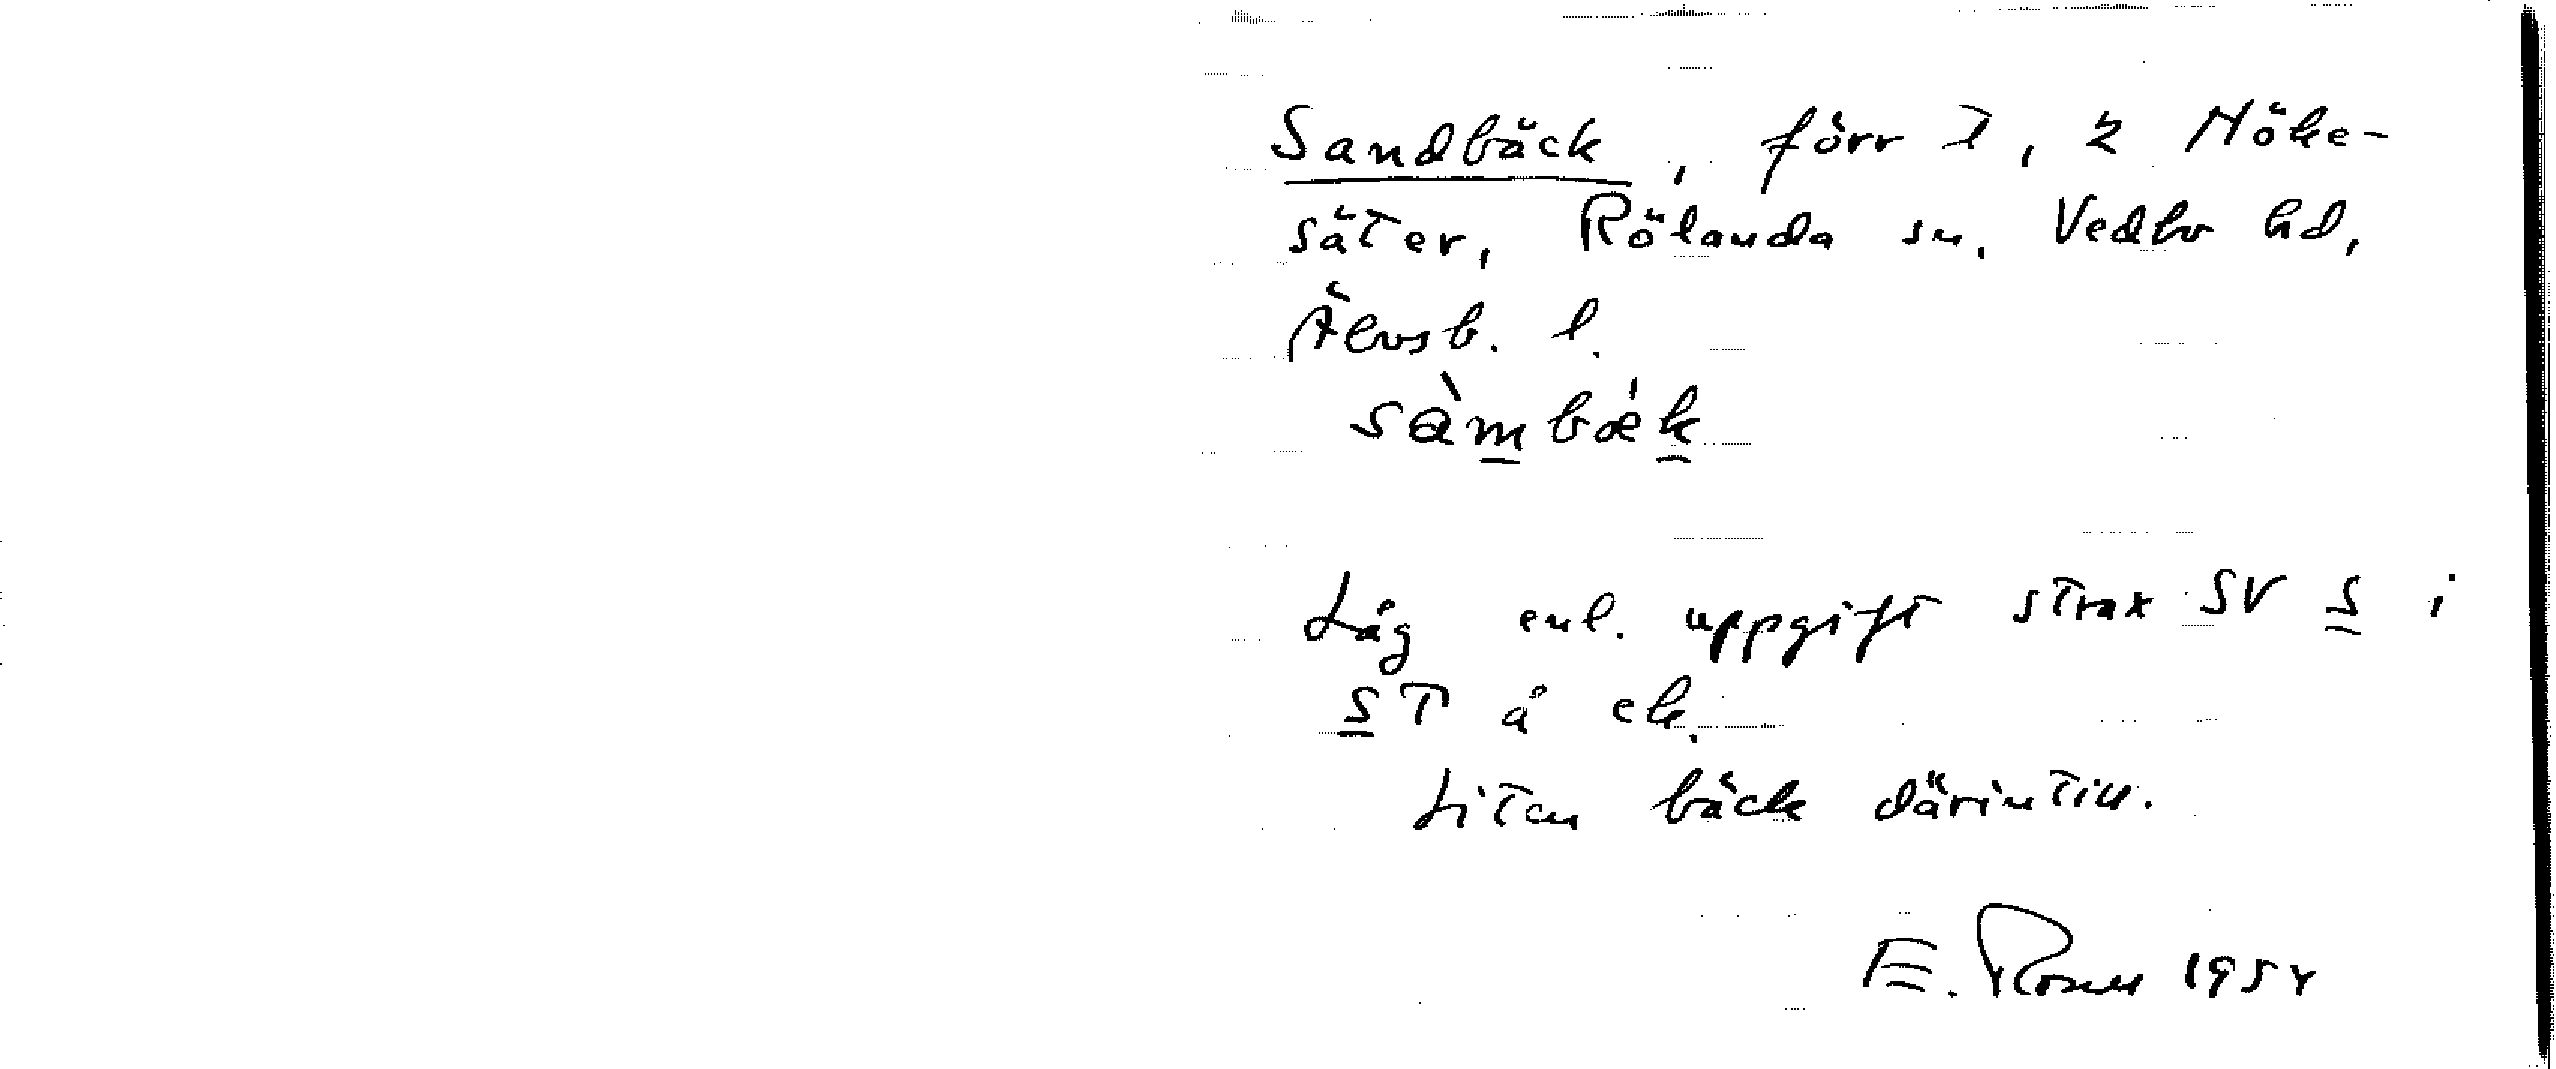 Sandbäck, förr T, 2 Höke-
säter, Rölanda sn, Vedbo hd,
Älvsb. l.
sàmbæ̀k
Låg enl. uppgift strax SV S i
ST å ek.
Liten bäck därintill.
E. Rosell 1954